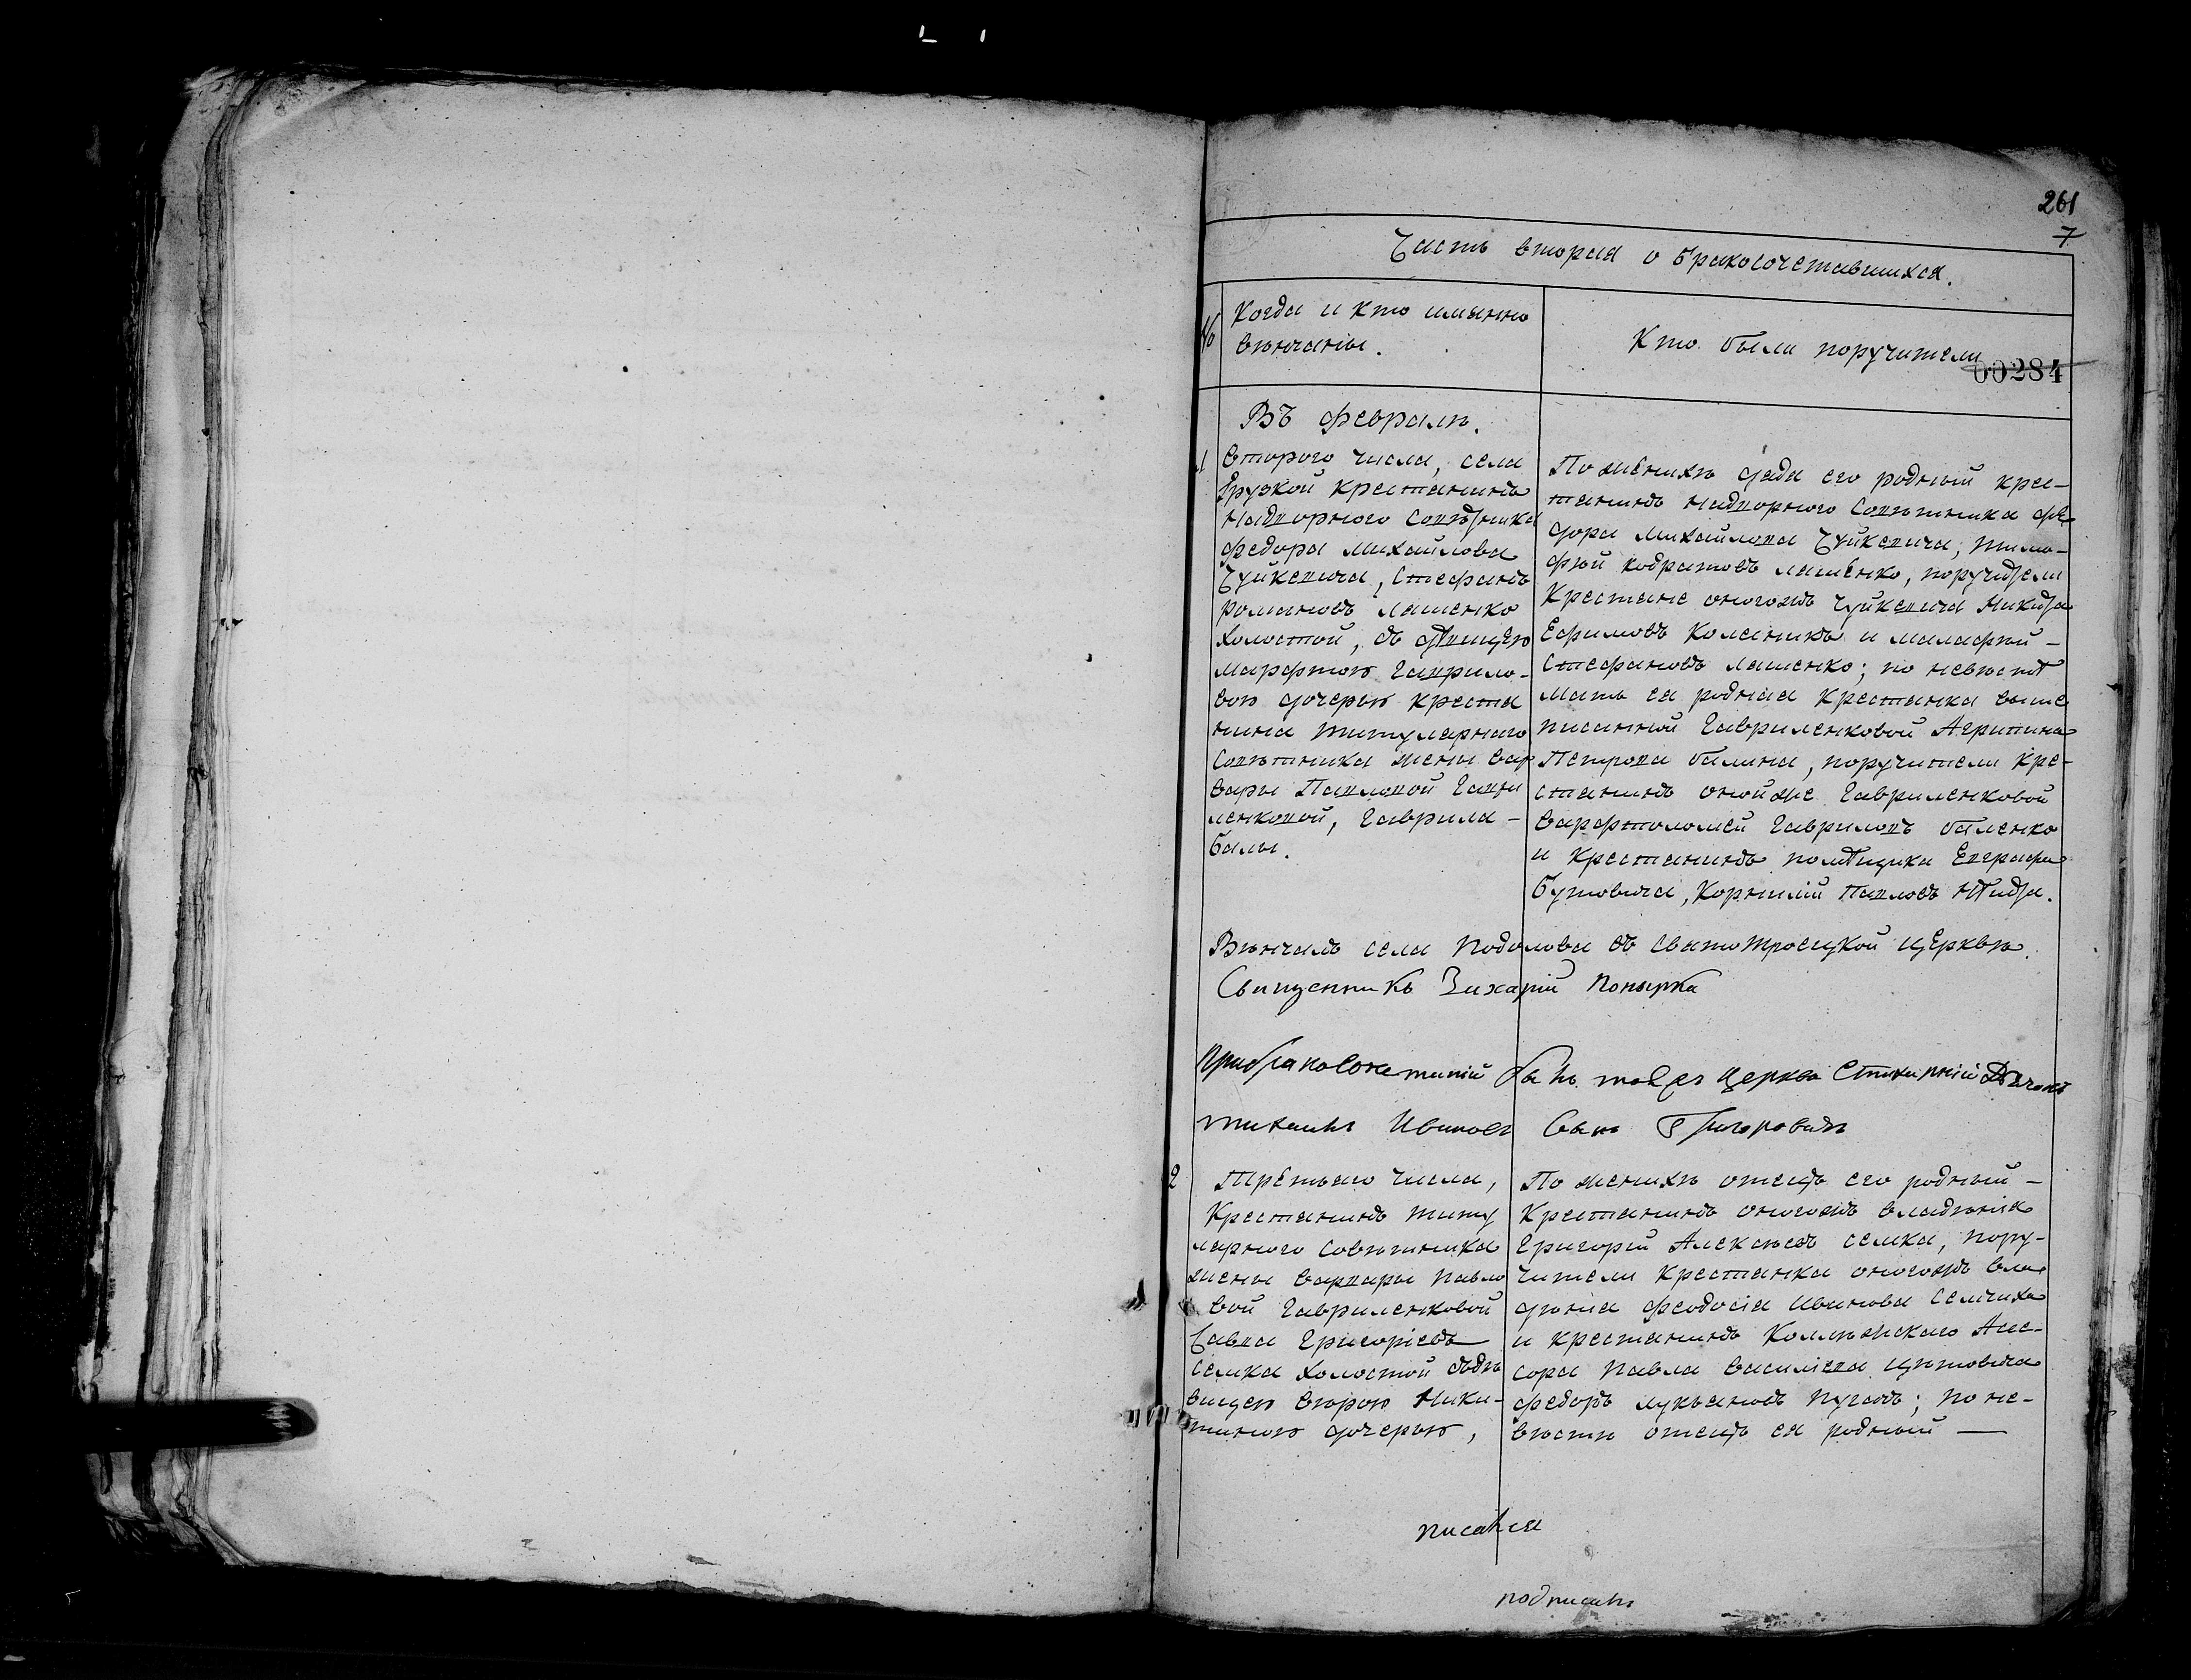 261
7
Часть вторая о бракосочетавшихся.
№
Когда и кто имянно
вѣнчаны.
Кто были поручители
00284
Въ февралѣ.
1
второго числа, села
Грузкой крестянинъ
надворного совѣтника
федора михайлова
Чуйкевича, стефанъ
романовъ лашенко
холостой, съ дѣвицею
марфтою гаврило-
вою дочерью креста
нина титулярнаго
совѣтника жены вар
вары Павловой гаври
ленковой, гаврила -
балы.
По женихѣ дядя его родный крес-
тянинъ надворного совѣтника фе
дора михайлова Чуйкевича, тимо-
фѣй кодратовъ лашенко, поручители
Крестяне оногожъ чуйкевича Никита
Ефимовъ колесникъ и малафѣй -
стефановъ лашенко; по невѣстѣ
мать ея родная крестянка выше
писанной гавриленковой Агрипина
Петрова балина, поручители кре-
стянинъ онойже гавриленковой
варфтоломей гавриловъ баленко
и крестянинъ помѣщика Евграфа
Бутовича, Корнилій павловъ
Вѣнчалъ села Подолова въ святотроецкой церквѣ.
Священникъ Захарій Попырка
При бракосочетаніи былъ тоеяж церкви Стихирній Дячокъ
михаилъ Ивановъ сынъ Григоровичъ
2
Третьего числа,
Крестянинъ титу
лярного совѣтника
жены варвары павло
вой гавриленковой
Савва григоріевъ
семка холостой съдѣ
вицею вѣрою Ники-
тиною дочерью,
По женихѣ отецъ его родный -
Крестянинъ оногожъ владѣнія
григорій Алексѣевъ семка, пору-
чители крестянка оногожъ вла
дѣнія феодосія иванова семчиха
и крестянинъ Коллѣжскаго Асес-
сора павла василіева
федоръ лукьяновъ пугачъ; по не-
вѣстѣ отецъ ея родный —
писался
подписалъ